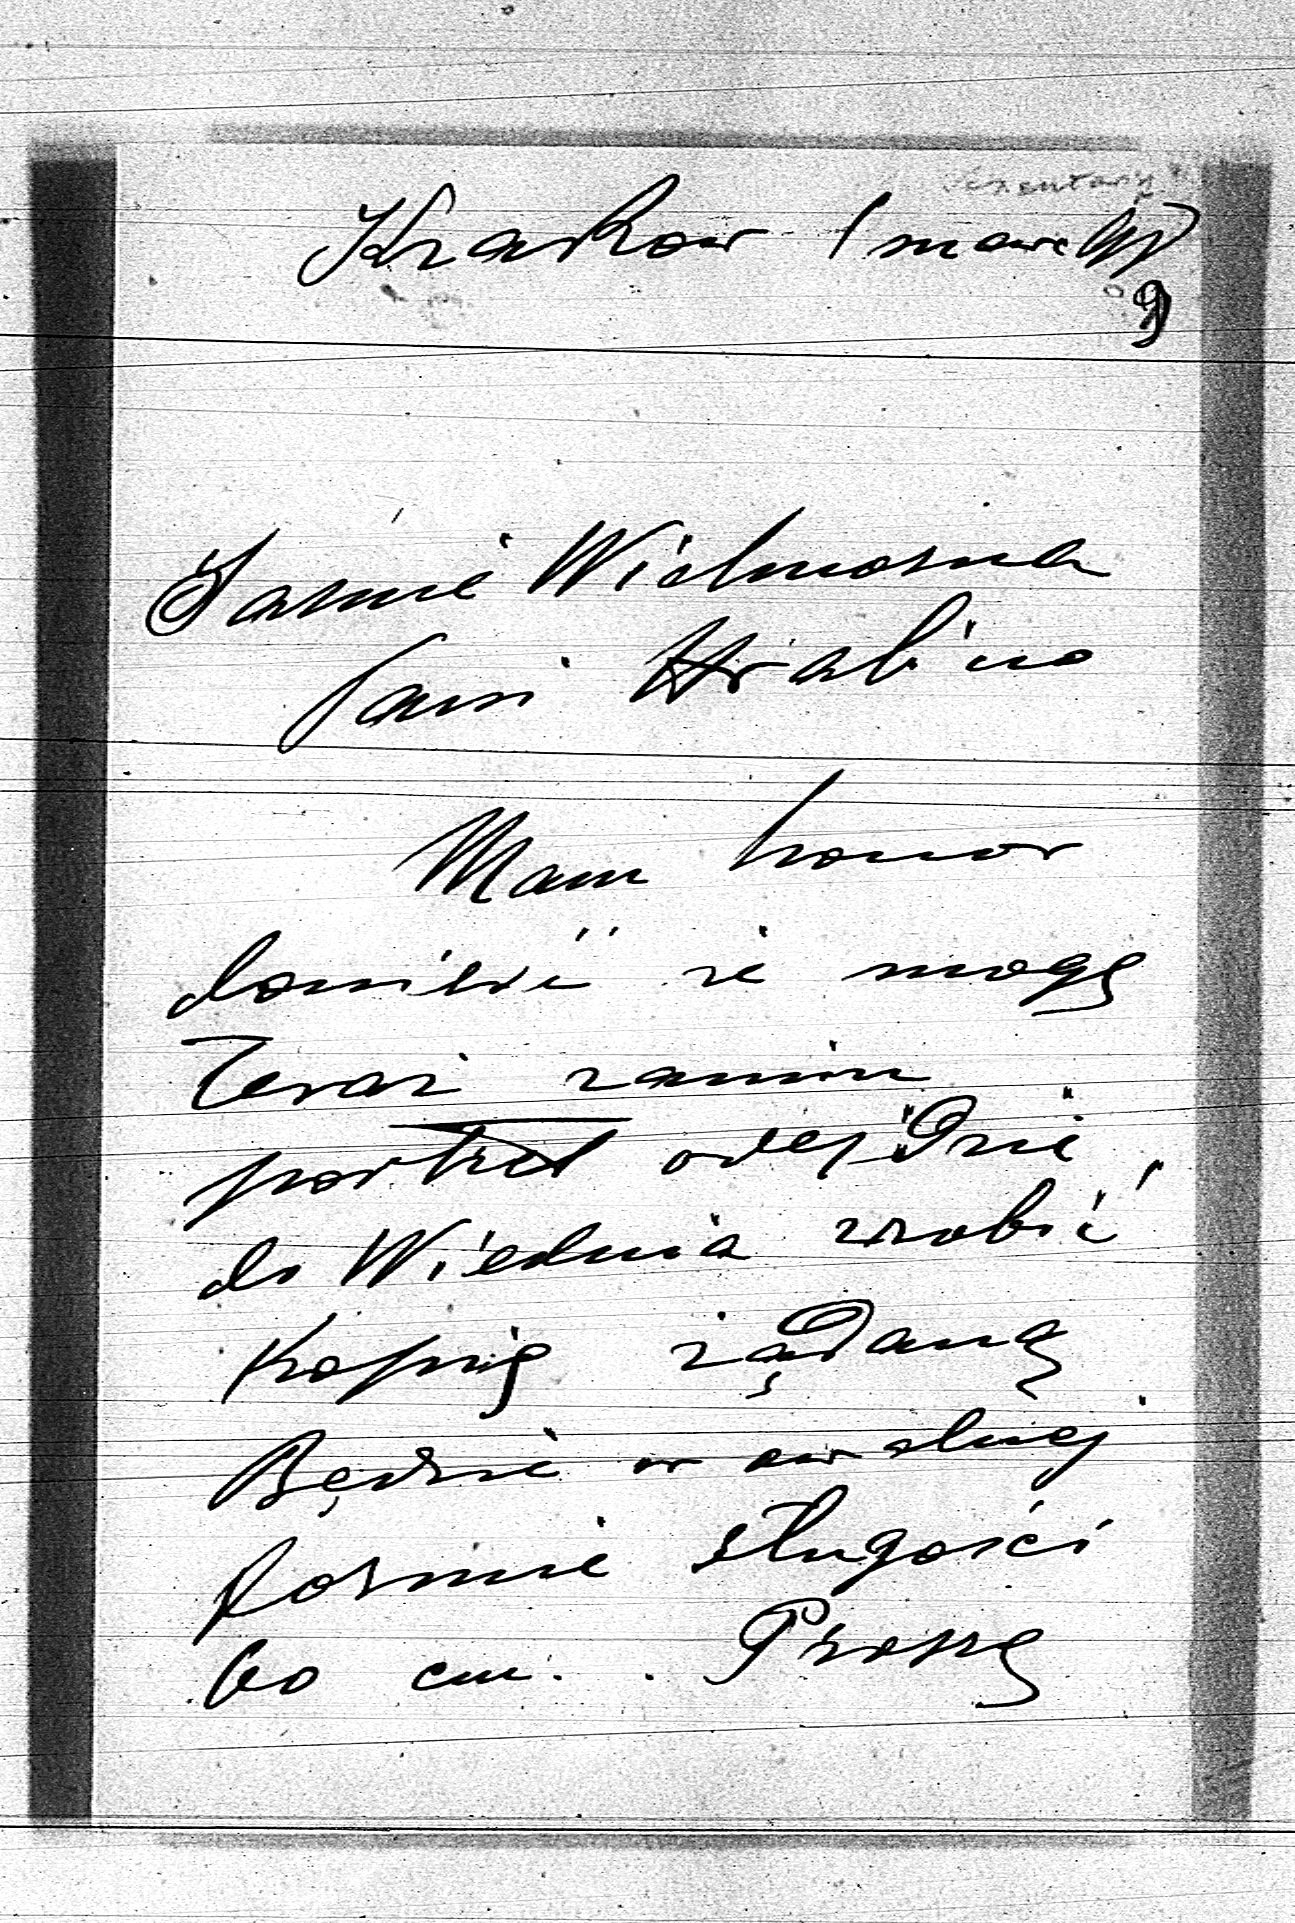 Krakow 1 marc
Jasnie Wielmozna
Pani Hrabino
Mam honor
donieść że mogę
teraz zanim
portret odejdzie
do Wiednia zrobić
Kopię żądaną
Będzie w owalnej
formie długości
60 cm. Proszę